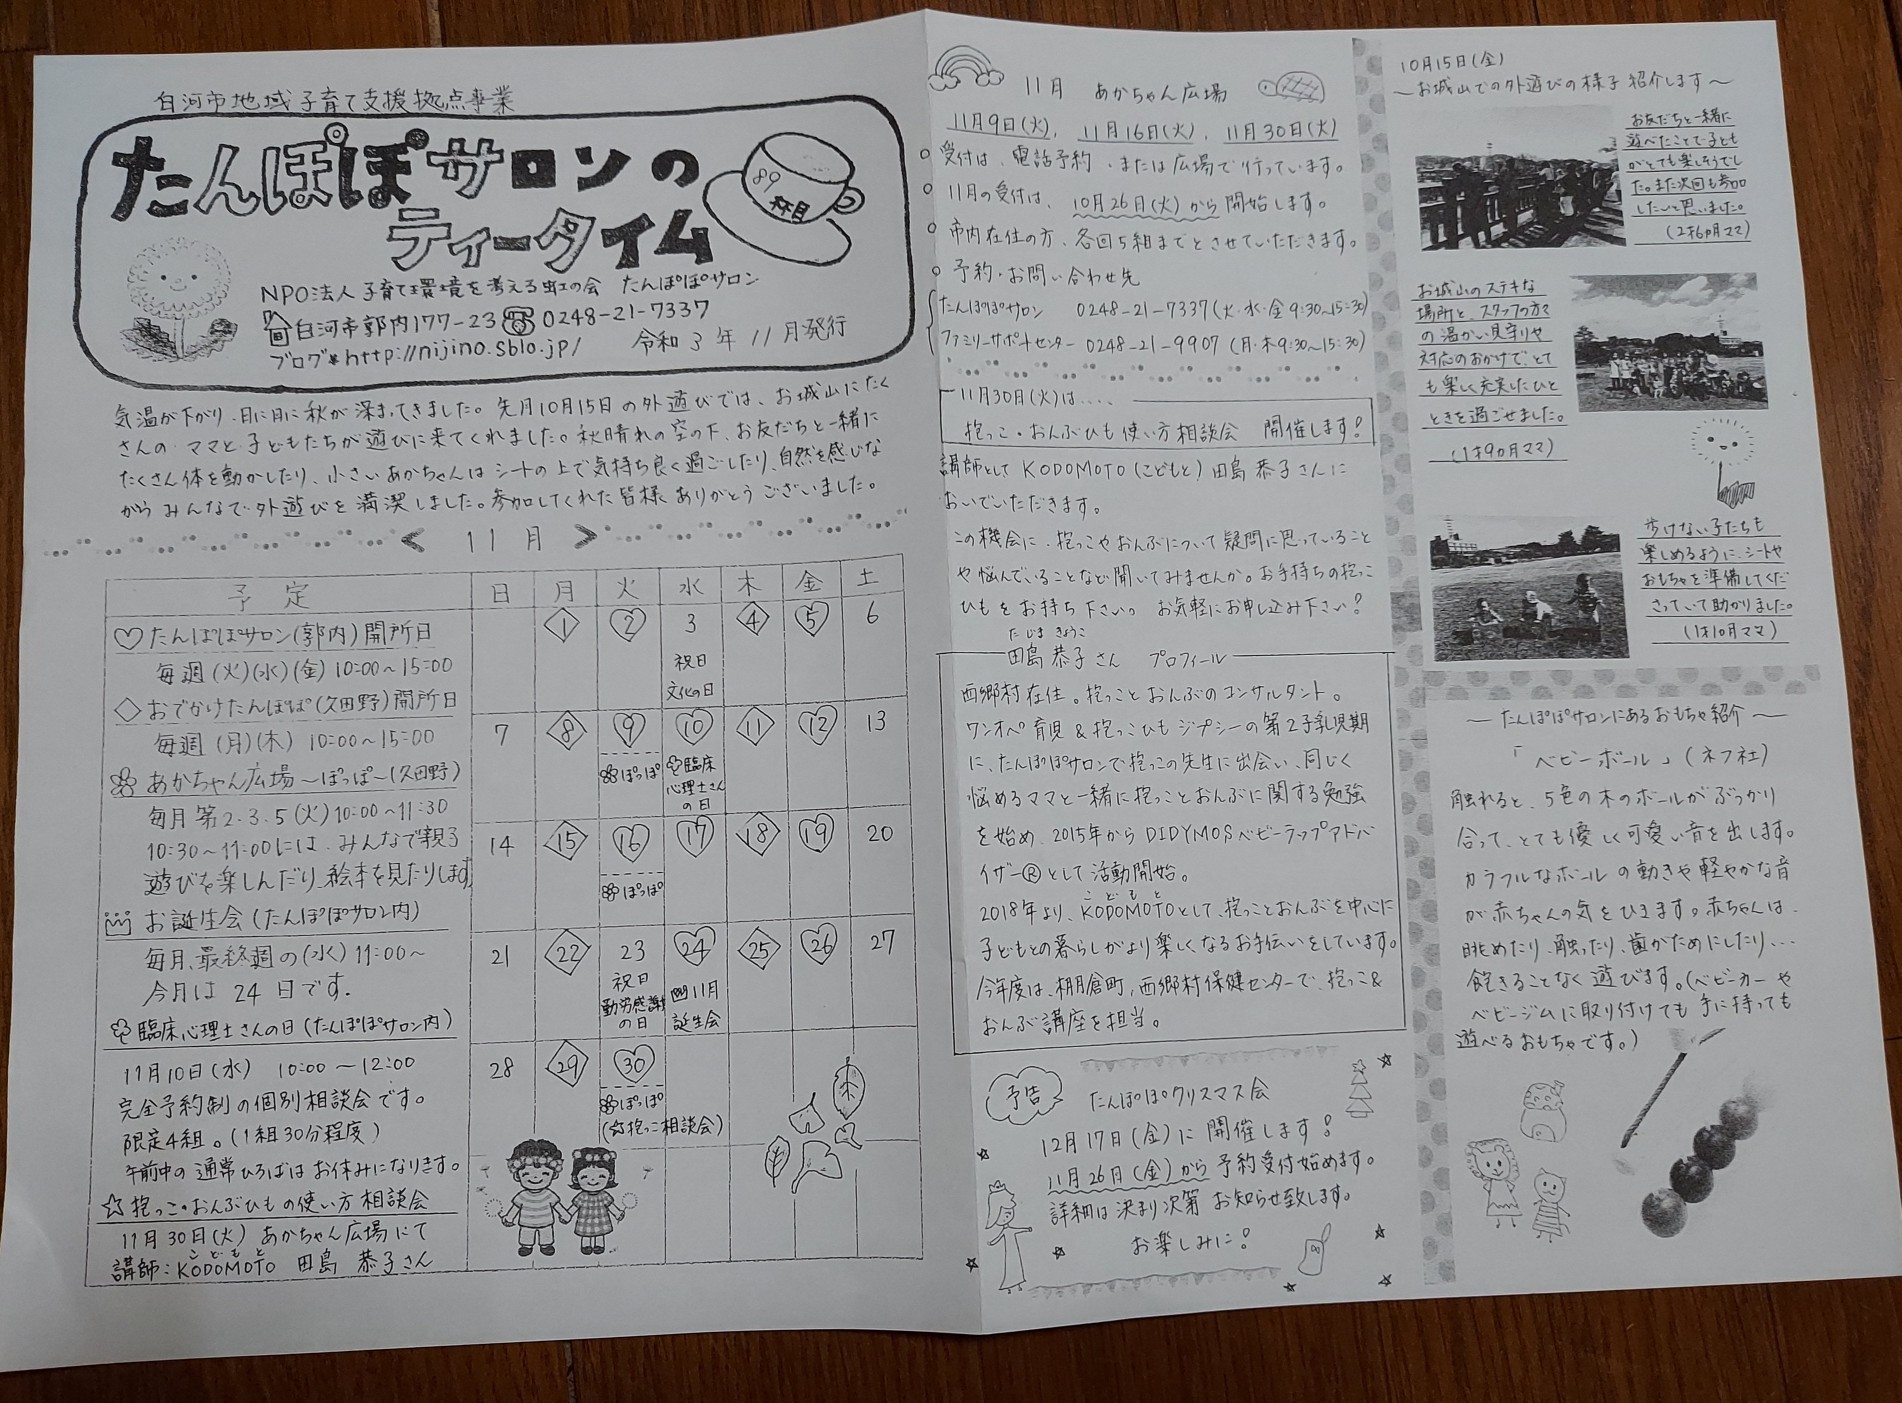 白河市地域子育て支援拠点事業
たんぽぽサロンの
ティータイム
89
杯目
NPO法人 子育て環境を考える虹の会 たんぽぽサロン
白河市郭内177-23 ☎ 0248-21-7337
ブログ http://nijino.sblo.jp/ 令和3年11月発行
気温が下がり、日に日に秋が深まってきました。先月10月15日の外遊びでは、お城山にたく
さんの ママと子どもたちが遊びに来てくれました。秋晴れの空の下、お友だちと一緒に
たくさん体を動かしたり、小さいあかちゃんはシートの上で気持ち良く過ごしたり、自然を感じな
がら みんなで外遊びを満喫しました。参加してくれた皆様 ありがとうございました。
< 11月 >
予定 日 月 火 水 木 金 土
♡たんぽぽサロン(郭内)開所日
毎週(火)(水)(金) 10:00~15:00
◇おでかけたんぽぽ(久田野)開所日
毎週(月)(木) 10:00~15:00
あかちゃん広場~ぽっぽ~(久田野)
毎月第2.3.5(火)10:00~11:30
10:30~11:00には、みんなで親子
遊びを楽しんだり、絵本を見たりします
お誕生会(たんぽぽサロン内)
毎月、最終週の(水)11:00~
今月は 24日です.
臨床心理士さんの日(たんぽぽサロン内)
11月10日(水) 10:00~12:00
完全予約制の個別相談会です。
限定4組。(1組30分程度)
午前中の通常ひろばはお休みになります。
☆抱っこ・おんぶひもの使い方相談会
11月30日(火) あかちゃん広場にて
こどもと
講師:KODOMOTO 田島 恭子さん
1 2 3 4 5 6
祝日
文化の日
7 8 9 10 11 12 13
ぽっぽ 臨床
心理士さん
の日
14 15 16 17 18 19 20
ぽっぽ
21 22 23 24 25 26 27
祝日
勤労感謝
の日
11月
誕生会
28 29 30
ぽっぽ
(☆抱っこ相談会)
11月 あかちゃん広場
11月9日(火)、11月16日(火)、11月30日(火)
○受付は、電話予約、または広場で行っています。
○11月の受付は、10月26日(火)から開始します。
○市内在住の方、各回5組までとさせていただきます。
○予約・お問い合わせ先
たんぽぽサロン 0248-21-7337(火・水・金 9:30~15:30)
ファミリーサポートセンター 0248-21-9907 (月・木9:30~15:30)
11月30日(火)は....
抱っこ・おんぶひも使い方相談会 開催します!
講師として KODOMOTO(こどもと)田島 恭子さんに
おいでいただきます。
この機会に、抱っこやおんぶについて疑問に思っていること
や悩んでいることなど聞いてみませんか。お手持ちの抱っこ
ひもをお持ち下さい。 お気軽にお申し込み下さい!
たじま きょうこ
田島 恭子さん プロフィール
西郷村在住。抱っことおんぶのコンサルタント。
ワンオペ育児&抱っこひもジプシーの第2子乳児期
に、たんぽぽサロンで抱っこの先生に出会い、同じく
悩めるママと一緒に抱っことおんぶに関する勉強
を始め、2015年から DIDYMOSベビーラップアドバ
イザー®として活動開始。
こどもと
2018年より、KODOMOTOとして、抱っことおんぶを中心に
子どもとの暮らしがより楽しくなるお手伝いをしています。
今年度は、棚倉町,西郷村保健センターで、抱っこ&
おんぶ講座を担当。
予告
たんぽぽクリスマス会
12月17日(金)に開催します!
11月26日(金)から予約受付始めます。
詳細は決まり次第 お知らせ致します。
お楽しみに!
10月15日(金)
~お城山での外遊びの様子 紹介します~
お友だちと一緒に
遊べたことで子ども
がとても楽しそうでし
た。また次回も参加
したいと思いました。
(2才6ヵ月ママ)
お城山のステキな
場所と、スタッフの方々
の温かい見守りや
対応のおかげで、とて
も楽しく充実したひと
ときを過ごせました。
(1才9ヵ月ママ)
歩けない子たちも
楽しめるように、シートや
おもちゃを準備してくだ
さっていて助かりました。
(1才10月ママ)
~たんぽぽサロンにあるおもちゃ紹介~
「ベビーボール」(ネフ社)
触れると、5色の木のボールがぶつかり
合って、とても優しく可愛い音を出します。
カラフルなボールの動きや軽やかな音
が赤ちゃんの気をひきます。赤ちゃんは、
眺めたり、触ったり、歯がためにしたり...
飽きることなく遊びます。(ベビーカーや
ベビージムに取り付けても手に持っても
遊べるおもちゃです。)